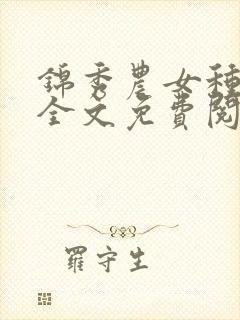 錦秀農女種
全文免費閱
羅守生